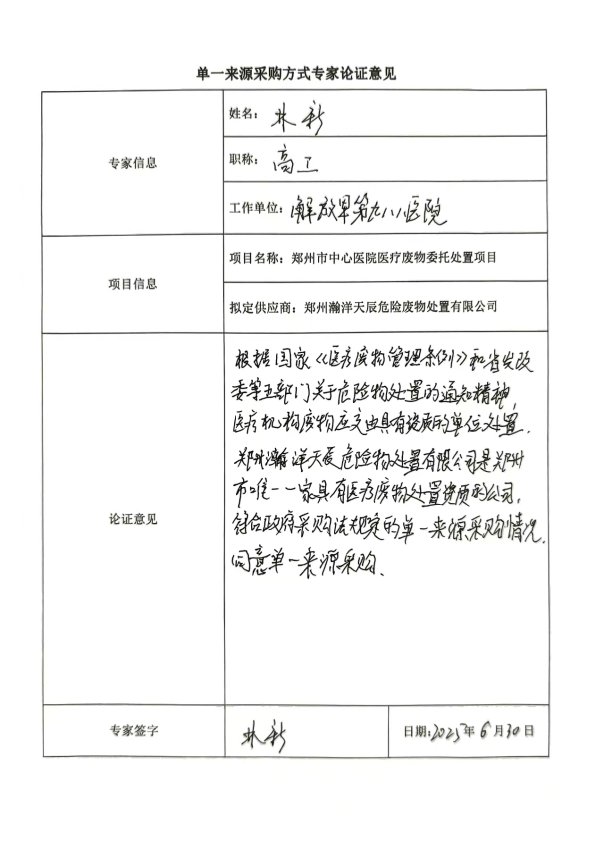 单一来源采购方式专家论证意见
专家信息
姓名：林新
职称：高工
工作单位：解放军第九八八医院
项目信息
项目名称：郑州市中心医院医疗废物委托处置项目
拟定供应商：郑州瀚洋天辰危险废物处置有限公司
论证意见
根据国家《医疗废物管理条例》和省发改
委等五部门关于危险物处置的通知精神，
医疗机构废物应交由具有资质的单位处置．
郑州瀚洋天辰危险物处置有限公司是郑州
市唯一一家具有医疗废物处置资质的公司，
符合政府采购法规定的单一来源采购情况，
同意单一来源采购．
专家签字
林新
日期：2025年6月30日